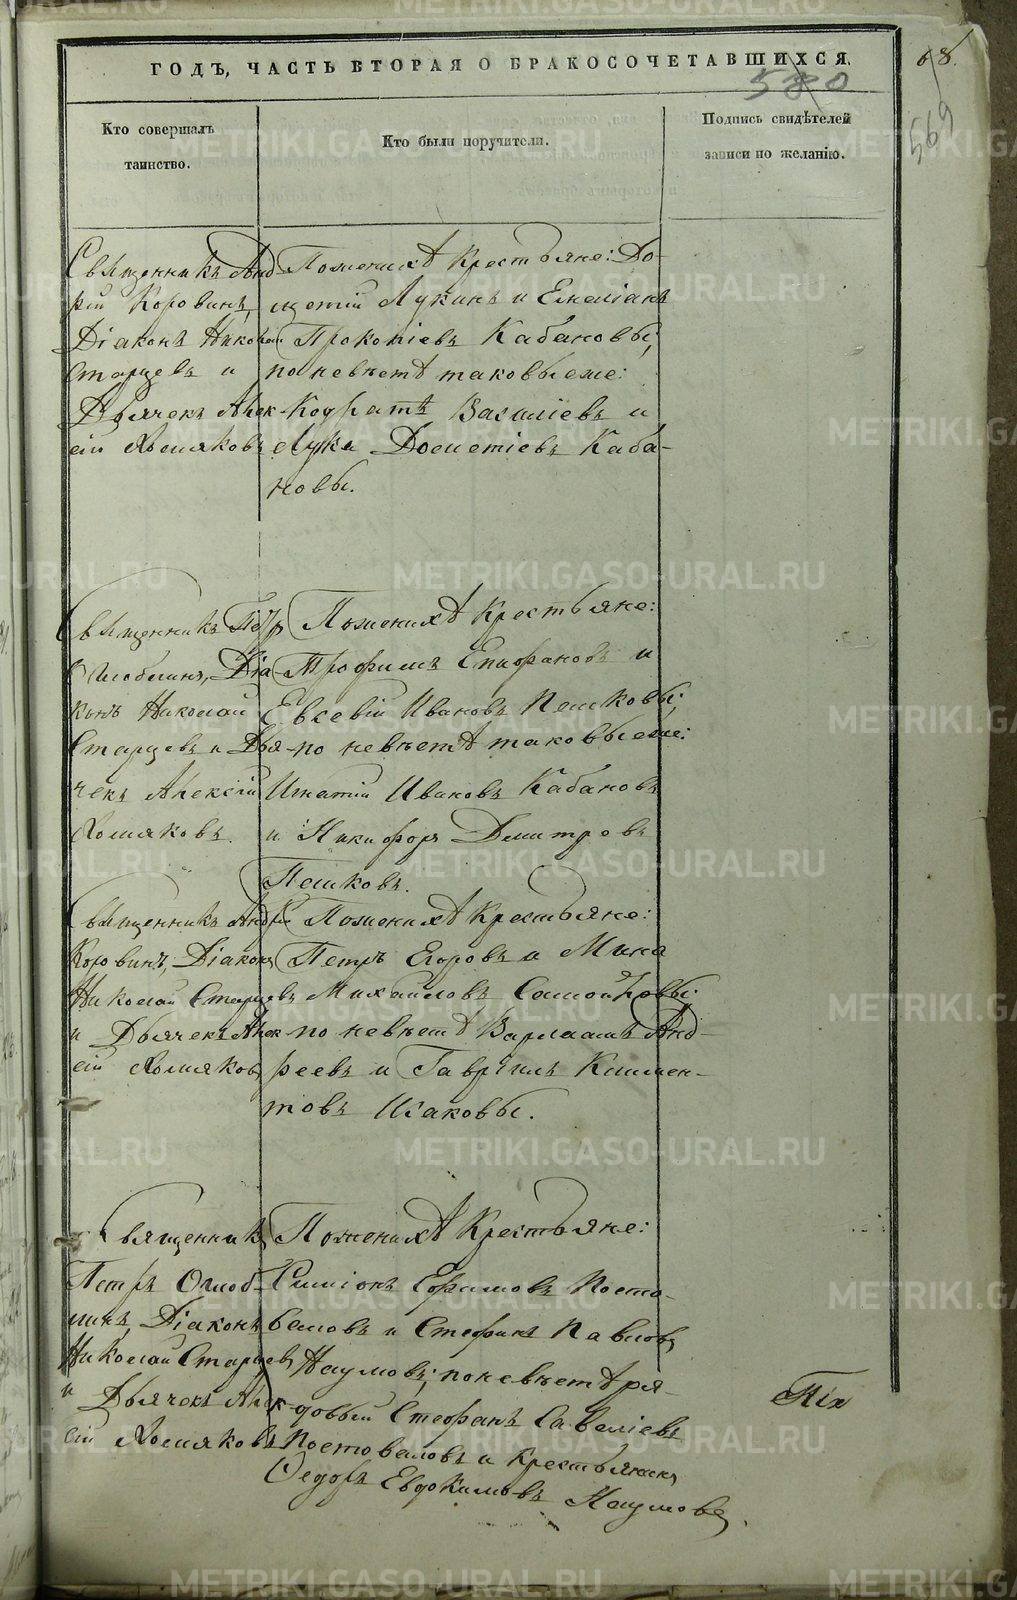 ГОДЪ, ЧАСТЬ ВТОРАЯ О БРАКОСОЧЕТАВШИХСЯ.
68.
580
569
Кто совершалъ
таинство.
Кто были поручители.
Подпись свидѣтелей
записи по желанію.
Священникъ Анд-
рій Коровинъ,
Діаконъ Николай
Старцевъ и
Дьячекъ Алек-
сій Хомяковъ
По женихѣ Крестьяне: До-
метій Лукинъ и Емеліанъ
Прокопіевъ Кабановы;
по невѣстѣ таковыеже:
Кодратъ Василіевъ и
Лука Дометіевъ Каба-
новы.
Священникъ Петръ
Оглоблинъ, Діа-
конъ Николай
Старцевъ и Дья-
чекъ Алексій
Хомяковъ.
По женихѣ Крестьяне:
Трофимъ Епифановъ и
Евсевій Ивановъ Пешковы;
по невѣстѣ таковыеже:
Игнатій Ивановъ Кабановъ
и Никифоръ Дмитровъ
Пешковъ.
Священникъ Андрій
Коровинъ, Діаконъ
Николай Старцевъ
и Дьячекъ Алек-
сій Хомяковъ
По женихѣ Крестьяне:
Петръ Егоровъ и Мина
Михайловъ Самойловы;
по невѣстѣ Варлаамъ Анд-
реевъ и Гавріилъ Климен-
товъ Исаковы.
Священникъ
Петръ Оглоб-
линъ, Діаконъ
Николай Старцевъ
и Дьячекъ Алек-
сій Хомяковъ
По женихѣ Крестьяне:
Симіонъ Ефимовъ Посто-
валовъ и Стефанъ Павловъ
Наумовъ; по невѣстѣ ря-
довый Стефанъ Савеліевъ
Постоваловъ и Крестьянинъ
Ѳедоръ Евдокимовъ Наумовъ.
METRIKI.GASO-URAL.RU